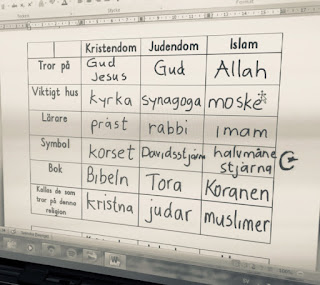 Kristendom Judendom Islam
Tror på Gud Jesus Gud Allah
Viktigt hus kyrka synagoga moské
Lärare präst rabbi imam
Symbol korset Davidsstjärna halvmåne stjärna
Bok Bibeln Tora Koranen
Kallas de som tror på denna religion kristna judar muslimer